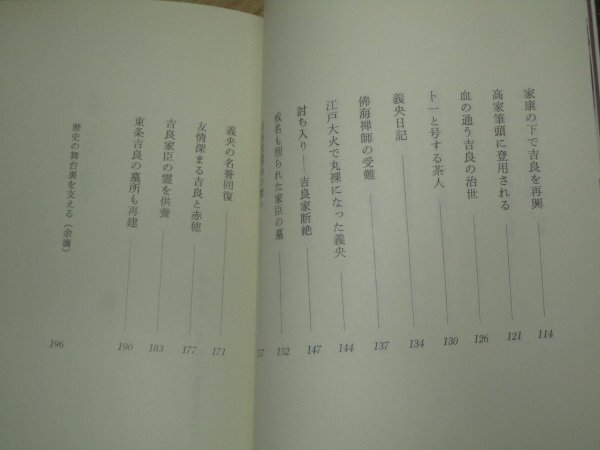 家康の下で吉良を再興 114
高家筆頭に登用される 121
血の通う吉良の治世 126
卜一と号する茶人 130
義央日記 134
佛海禅師の受難 137
江戸大火で丸裸になった義央 144
討ち入り——吉良家断絶 147
戒名も削られた家臣の墓 152
義央の名誉回復 171
友情深まる吉良と赤穂 177
吉良家臣の霊を供養 183
東条吉良の墓所も再建 190
歴史の舞台裏を支える（余滴） 196